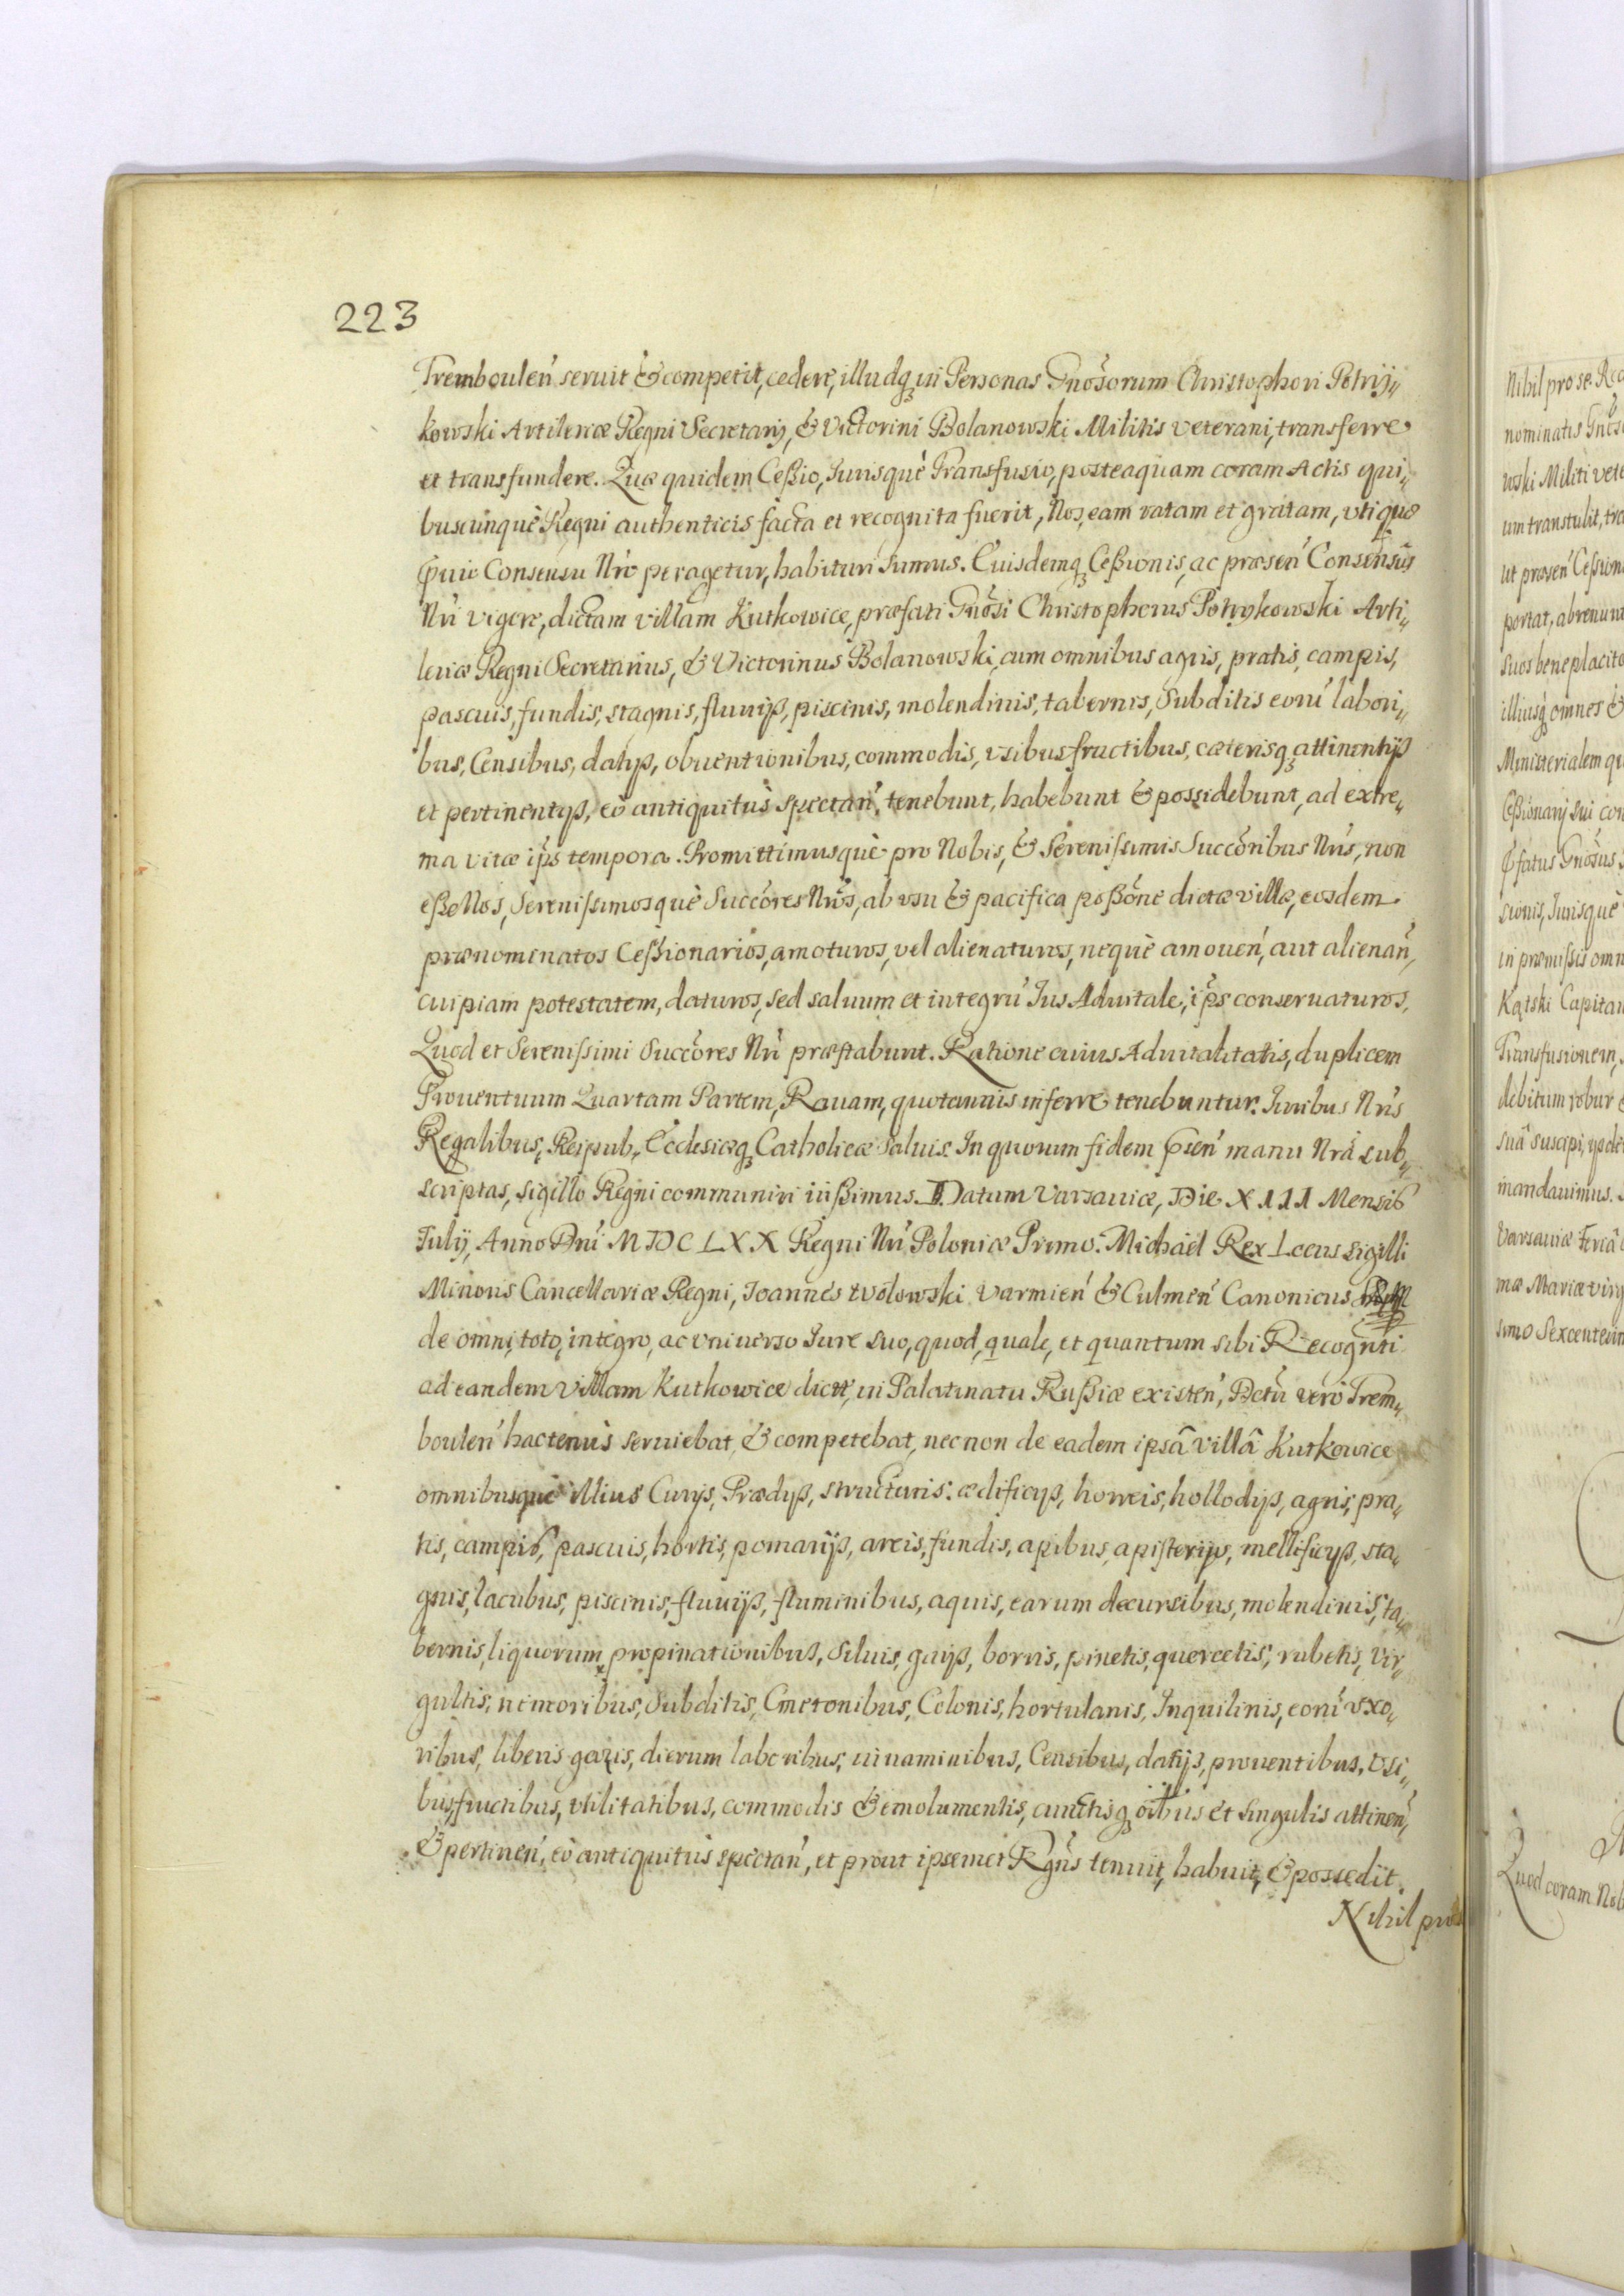 223
Tremboulen̄ seruit & competit, cedere, illudq; in Personas Gnōsorum Christophori Petrij„
kowski Artileriæ Regni Secretarij, & Victorini Bolanowski Militis veterani, transferre
et transfundere. Quæ quidem Ceßio, Iurisquè Transfusio, posteaquam coram Actis qui„
buscunquè Regni authenticis facta et recognita fuerit, Nos, eam ratam et gratam, vti quæ
p̄uio Consensu Nr̄o peragetur, habituri sumus. Cuisdemq; Ceßionis, ac præsen̄ Consensûs
Nr̄i vigore, dictam villam Kutkowice, præfati Gnōsi Christophorus Potrykowski Arti„
leriæ Regni Secretarius, & Victorinus Bolanowski, cum omnibus agris, pratis, campis,
pascuis, fundis, stagnis, fluuijß, piscinis, molendinis, tabernis, Subditis eorū labori„
bus, Censibus, datijß, obuentionibus, commodis, vsibusfructibus, cæterisq; attinentijß
et pertinentijß, eò antiquitùs spectan̄, tenebunt, habebunt & possidebunt, ad extre„
ma vitæ ip̄s tempora. Promittimusquè pro Nobis, & Serenissimis Succōribus Nr̄is, non
eße Nos, Serenissimosquè Succōres Nr̄os, ab vsu & pacifica poßōne dictæ villæ, eosdem
prænomenatos Ceßionarios, amoturos, vel alienaturos, nequè amouen̄, aut alienan̄,
cuipiam potestatem, daturos, sed saluum et integrū Ius Aduitale, ip̄s conseruaturos,
Quod et Serenissimi Succōres Nr̄i præstabunt. Ratione cuius Aduitalitatis, duplicem
Prouentuum Quartam Partem, Rauam, quotannis inferre tenebuntur. Iuribus Nr̄is
Regalibus, Reipub„ Ecclesiæq; Catholicæ saluis. In quorum fidem p̄sen̄ manu Nr̄â sub„
scriptas, sigillo Regni communiri iußimus. Datum Varsauiæ, Die XIII Mensis
Iulij, Anno Dn̄i MDCLXX Regni Nr̄i Poloniæ Primo. Michaël Rex Locus sigilli
Minoris Cancellariæ Regni, Joannes Wolowski Varmien̄ & Culmen̄ Canonicus
de omni, toto, integro, ac vniuerso Jure suo, quod, quale, et quantum sibi Recogn̄ti
ad eandem villam Kutkowice dict̄, in Palatinatu Rußiæ existen̄, Dctū verò Trem„
boulen̄ hactenùs seruiebat & competebat, necnon de eadem ipsâ villâ Kutkowice
omnibusquè illius Curijs, Prædijß, structuris, ædificijß, horreis, hollodijß, agris, pra„
tis, campis, pascuis, hortis, pomarijß, areis, fundis, apibus, apisterijs, mellificijß, sta„
gnis, lacubus, piscinis, fluuijß, fluminibus, aquis, earum decursibus, molendinis, ta„
bernis, liquorum propinationibus, siluis, gaijß, borris, pinetis, quercetis, rubetis, vir„
gultis, nemoribus, Subditis, Cmetonibus, Colonis, hortulanis, Inquilinis, eorū vxo„
ribus, liberis gazis, dierum laboribus, iuuaminibus, Censibus, datijs, prouentibus, Vsi„
busfructibus, vtilitatibus, commodis & emolumentis, cunctisq; oībus et singulis attinen̄,
& pertinen̄, eò antiquitùs spectan̄, et prout ipsemet Rgn̄s tenuit, habuit, & possedit.
Nihil pro
Nihil pro se
nominatis
wski Militi
um transtulit,
ut præsen̄
portat, abrenun
suos beneplacito
illiusq; omnes &
Ministerialem
Ceßionarij sui
p̄fatus Gnōsus
sionis, Iurisquè
in præmissis
Kątski Capitan
Transfusionem,
debitum robur
suâ suscipi,
mandauimus.
Varsauiæ Feriâ
mæ Mariæ
simo Sexcentesim
Quod coram